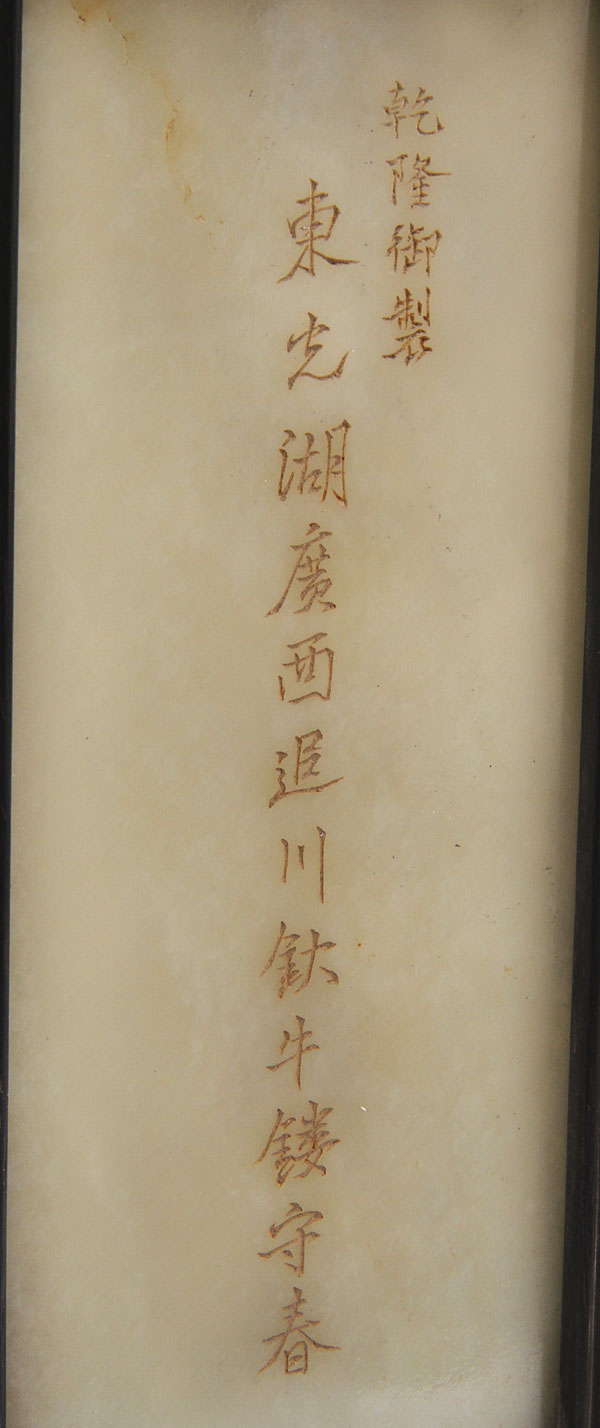 乾隆御製
東光湖廣西迟川鈥牛鏤守春